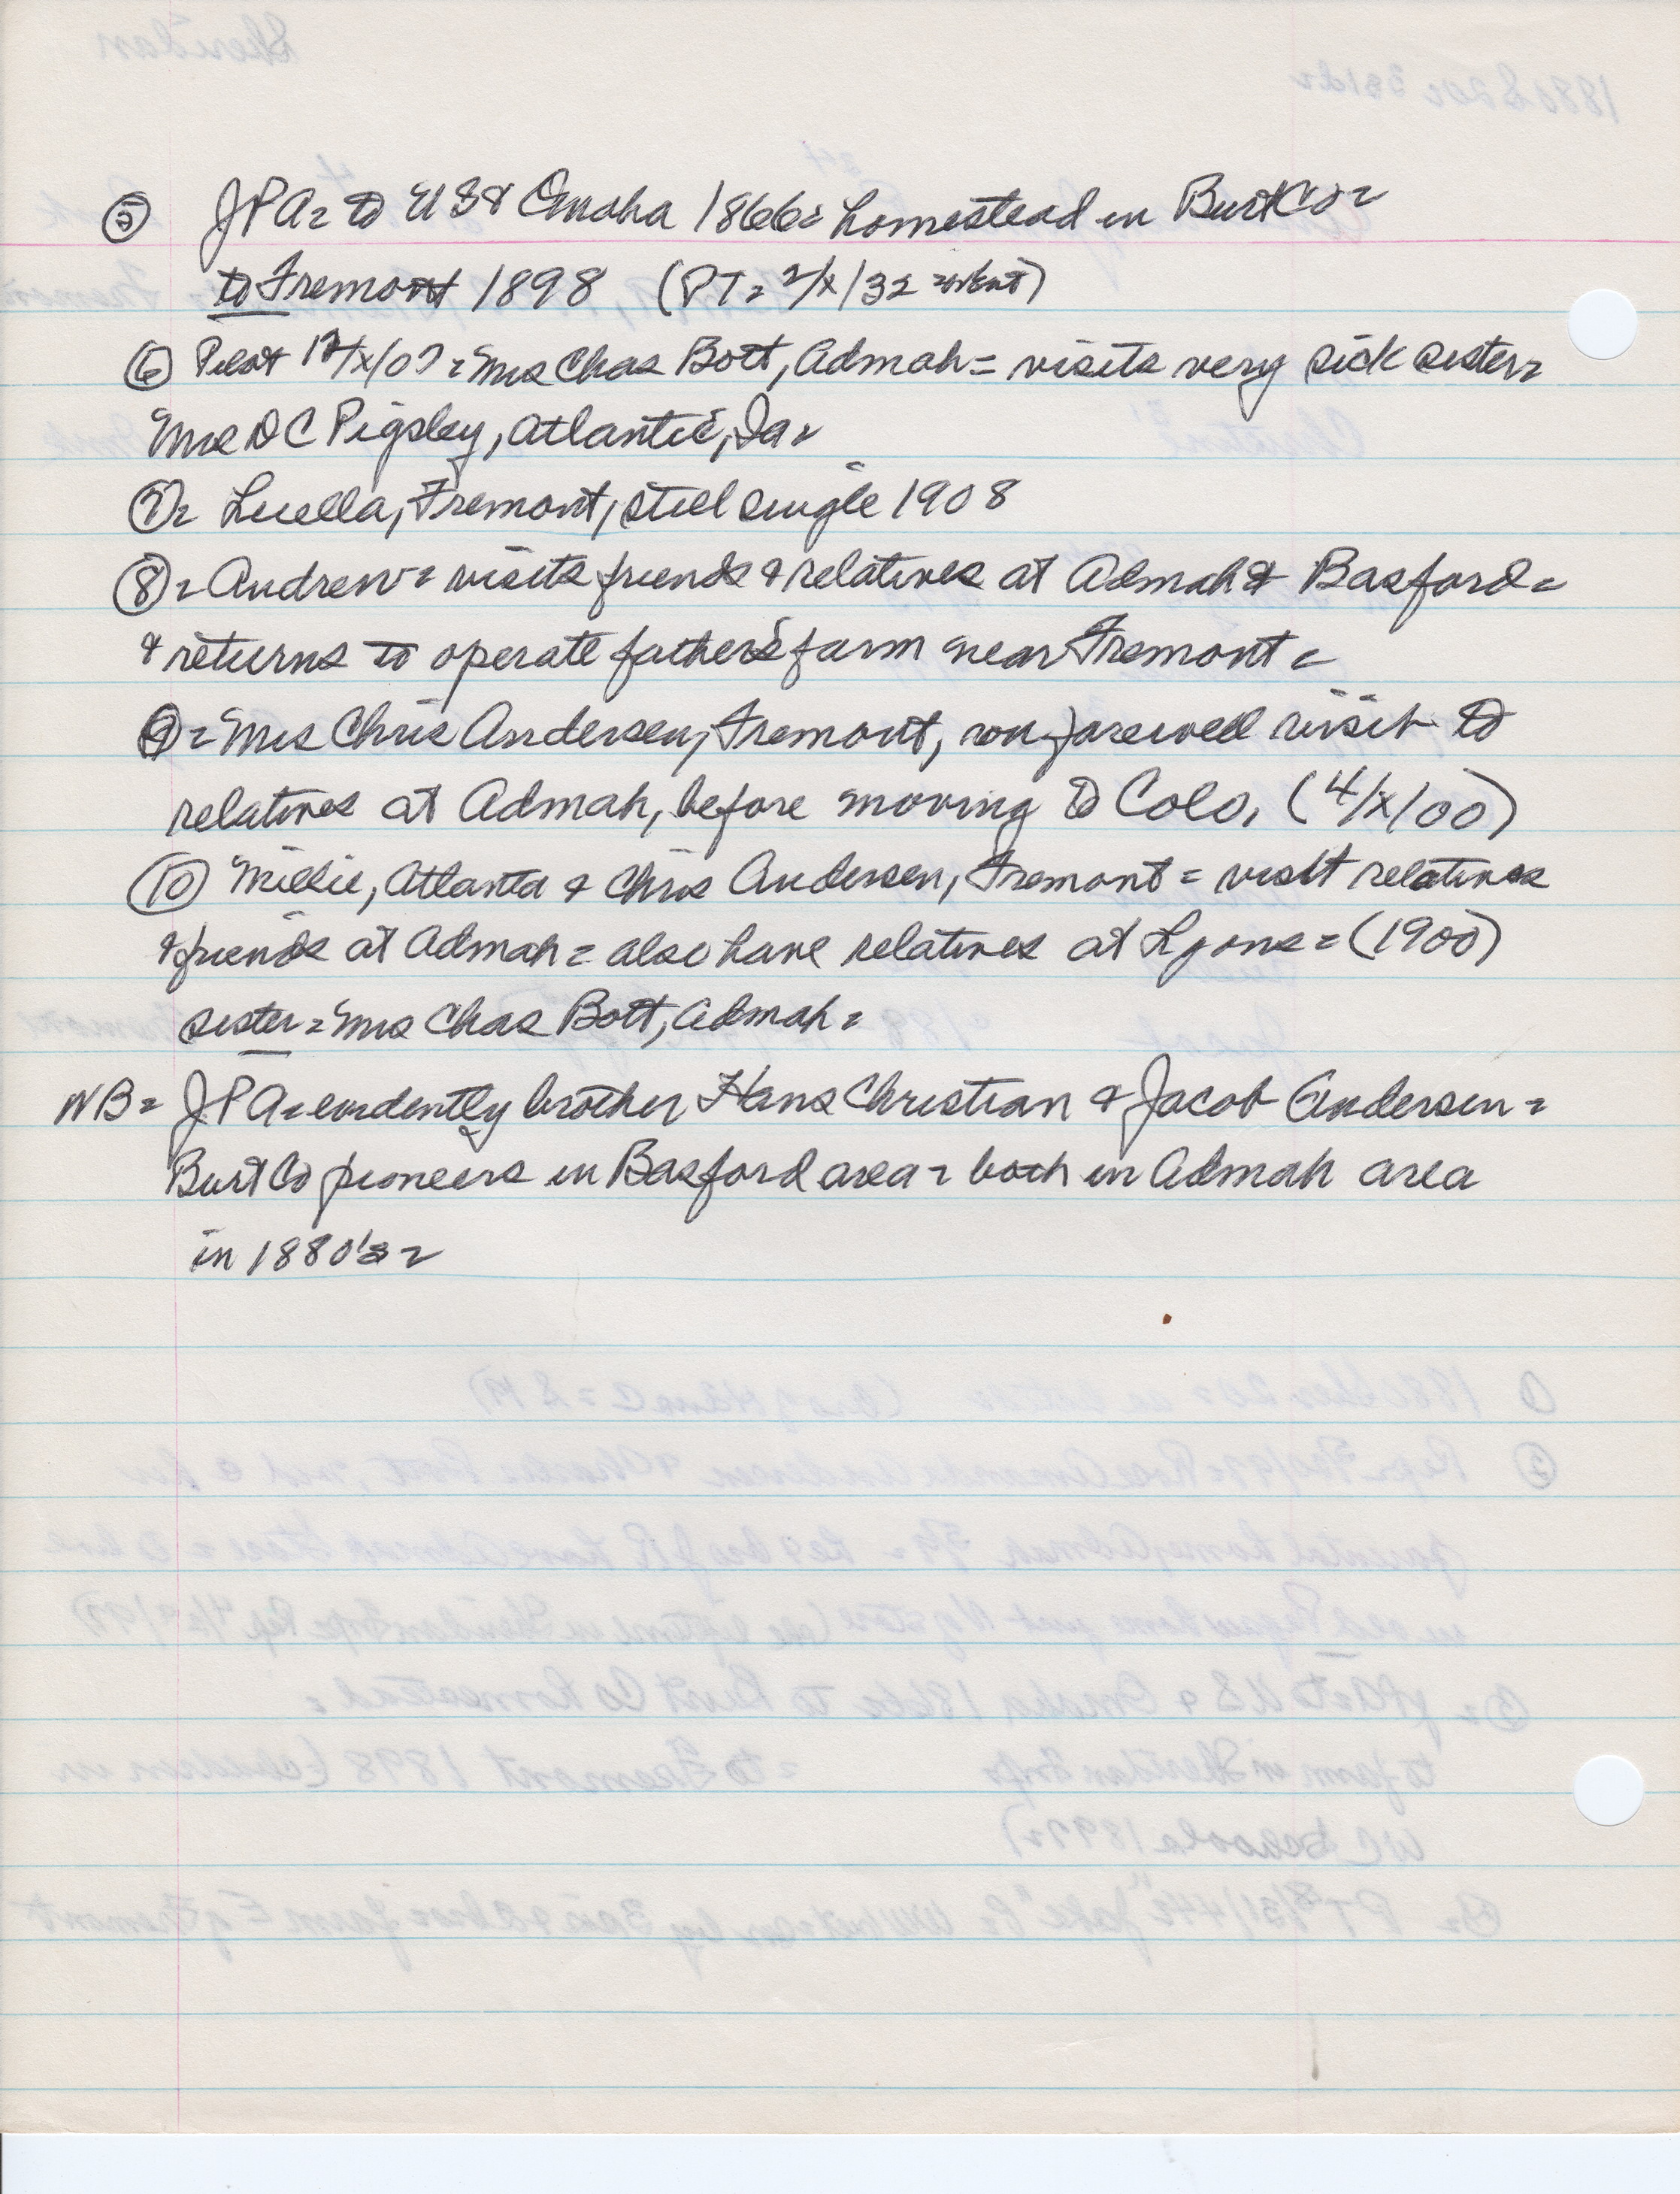 ⑤ JPA = to US & Omaha 1866 = homestead in Burt Co =
to Fremont 1898 (PT = 2/x/32 =
⑥ Pilot 12/x/07 = Mrs Chas Bott, Admah = visits very sick sister =
Mrs D C Pigsley, Atlantic, Ia =
⑦ = Luella, Fremont, still single 1908
⑧ = Andrew = visits friends & relatives at Admah & Basford =
& returns to operate father's farm near Fremont =
⑨ = Mrs Chris Andersen, Fremont, on farewell visit to
relatives at Admah, before moving to Colo. (4/x/00)
⑩ Millie, Atlanta & Chris Andersen, Fremont = visit relatives
& friends at Admah = also have relatives at Lyons = (1900)
sister = Mrs Chas Bott, Admah =
NB = JPA = evidently brother Hans Christian & Jacob Andersen =
Burt Co pioneers in Basford area = both in Admah area
in 1880's =